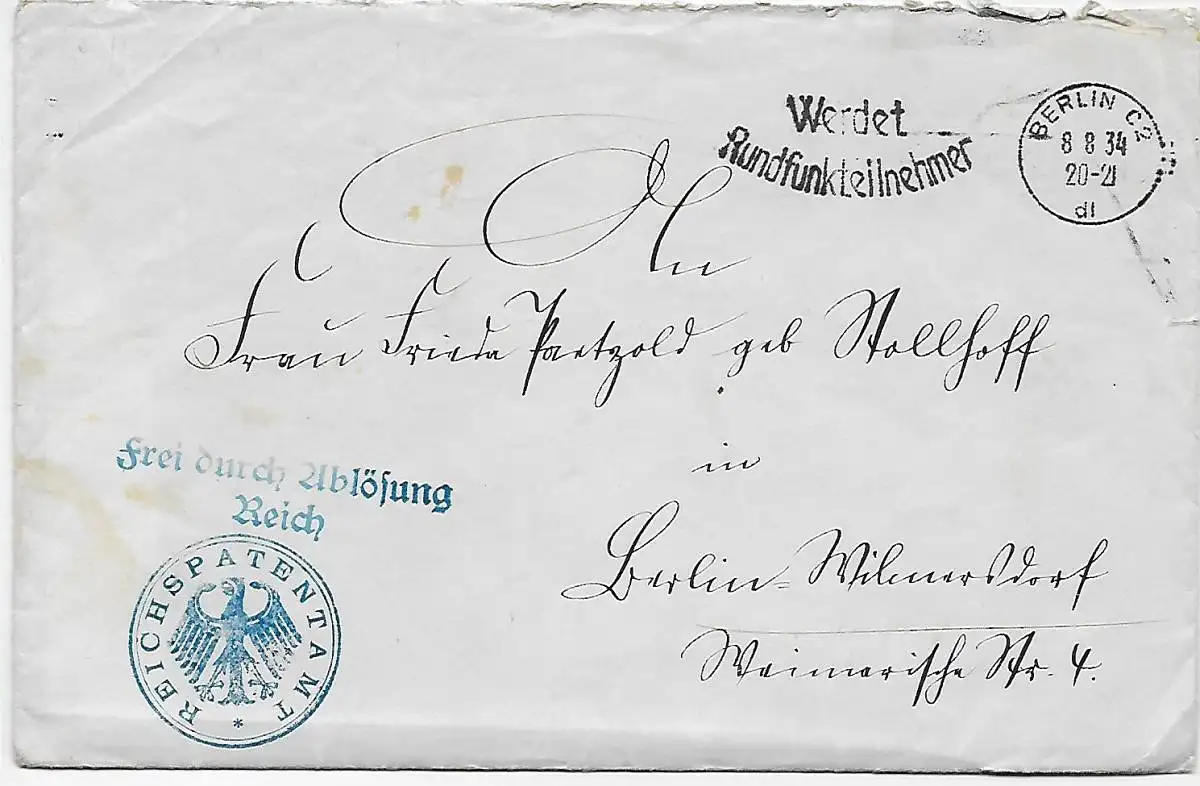 Werdet
Rundfunkteilnehmer
BERLIN C2
8 8 34
20-21
d1
An
Frau Frieda Paetzold geb Stollhoff
in
Berlin-Wilmersdorf
Weimarische Str. 4.
Frei durch Ablösung
Reich
REICHSPATENTAMT
*